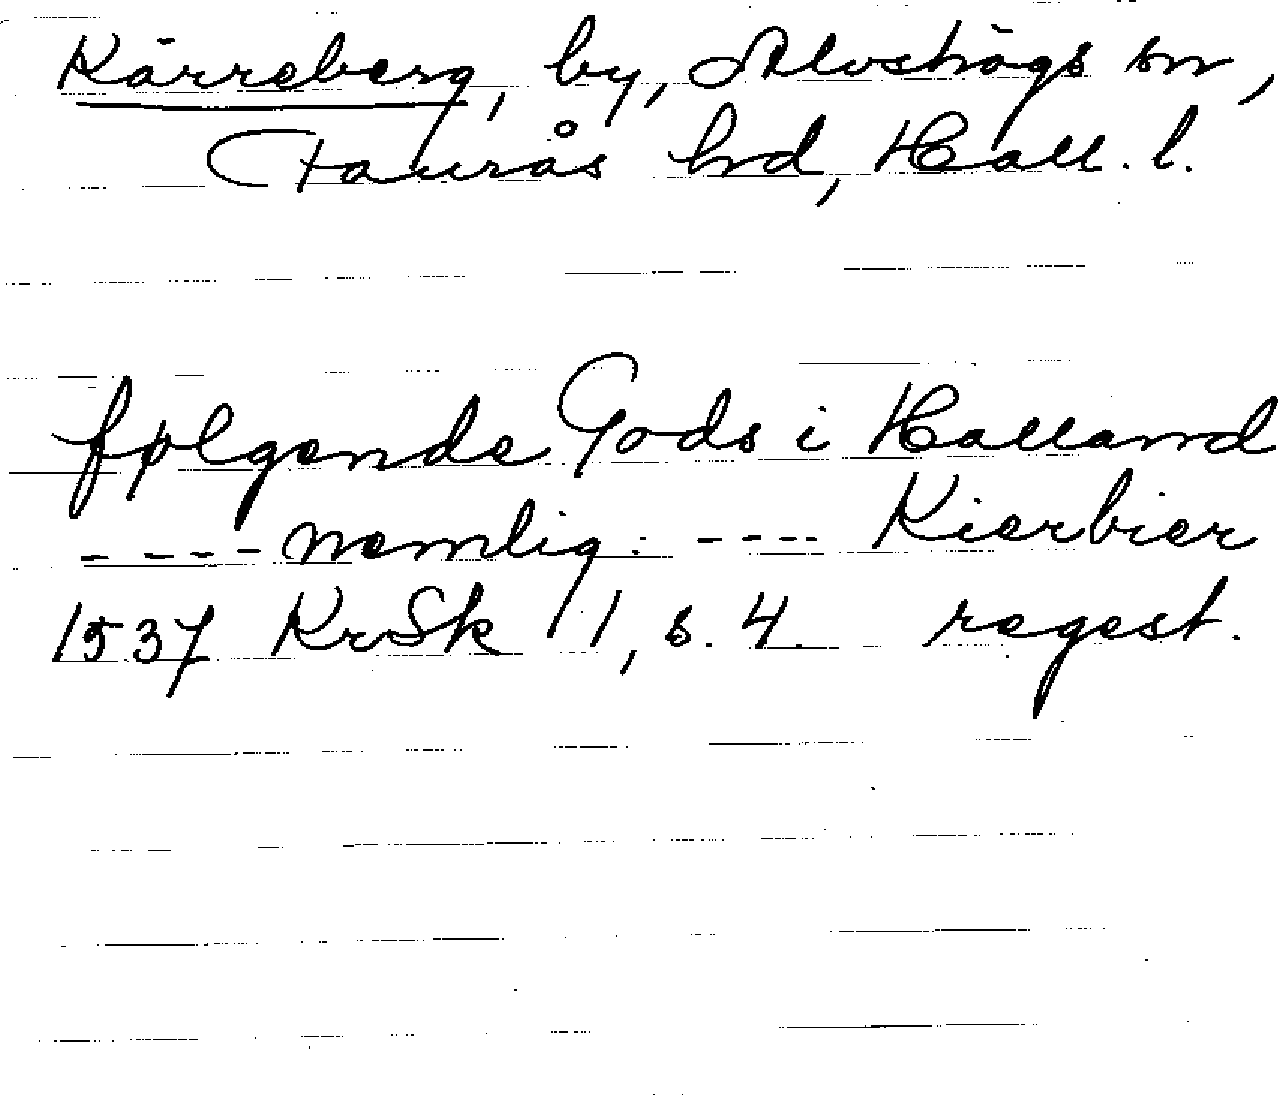 Kärreberg, by, Alvshögs sn,
Faurås hd, Hall. l.
følgende Gods i Halland
---- nemlig: ---- Kierbier
1537 KrSk 1, s. 4. regest.